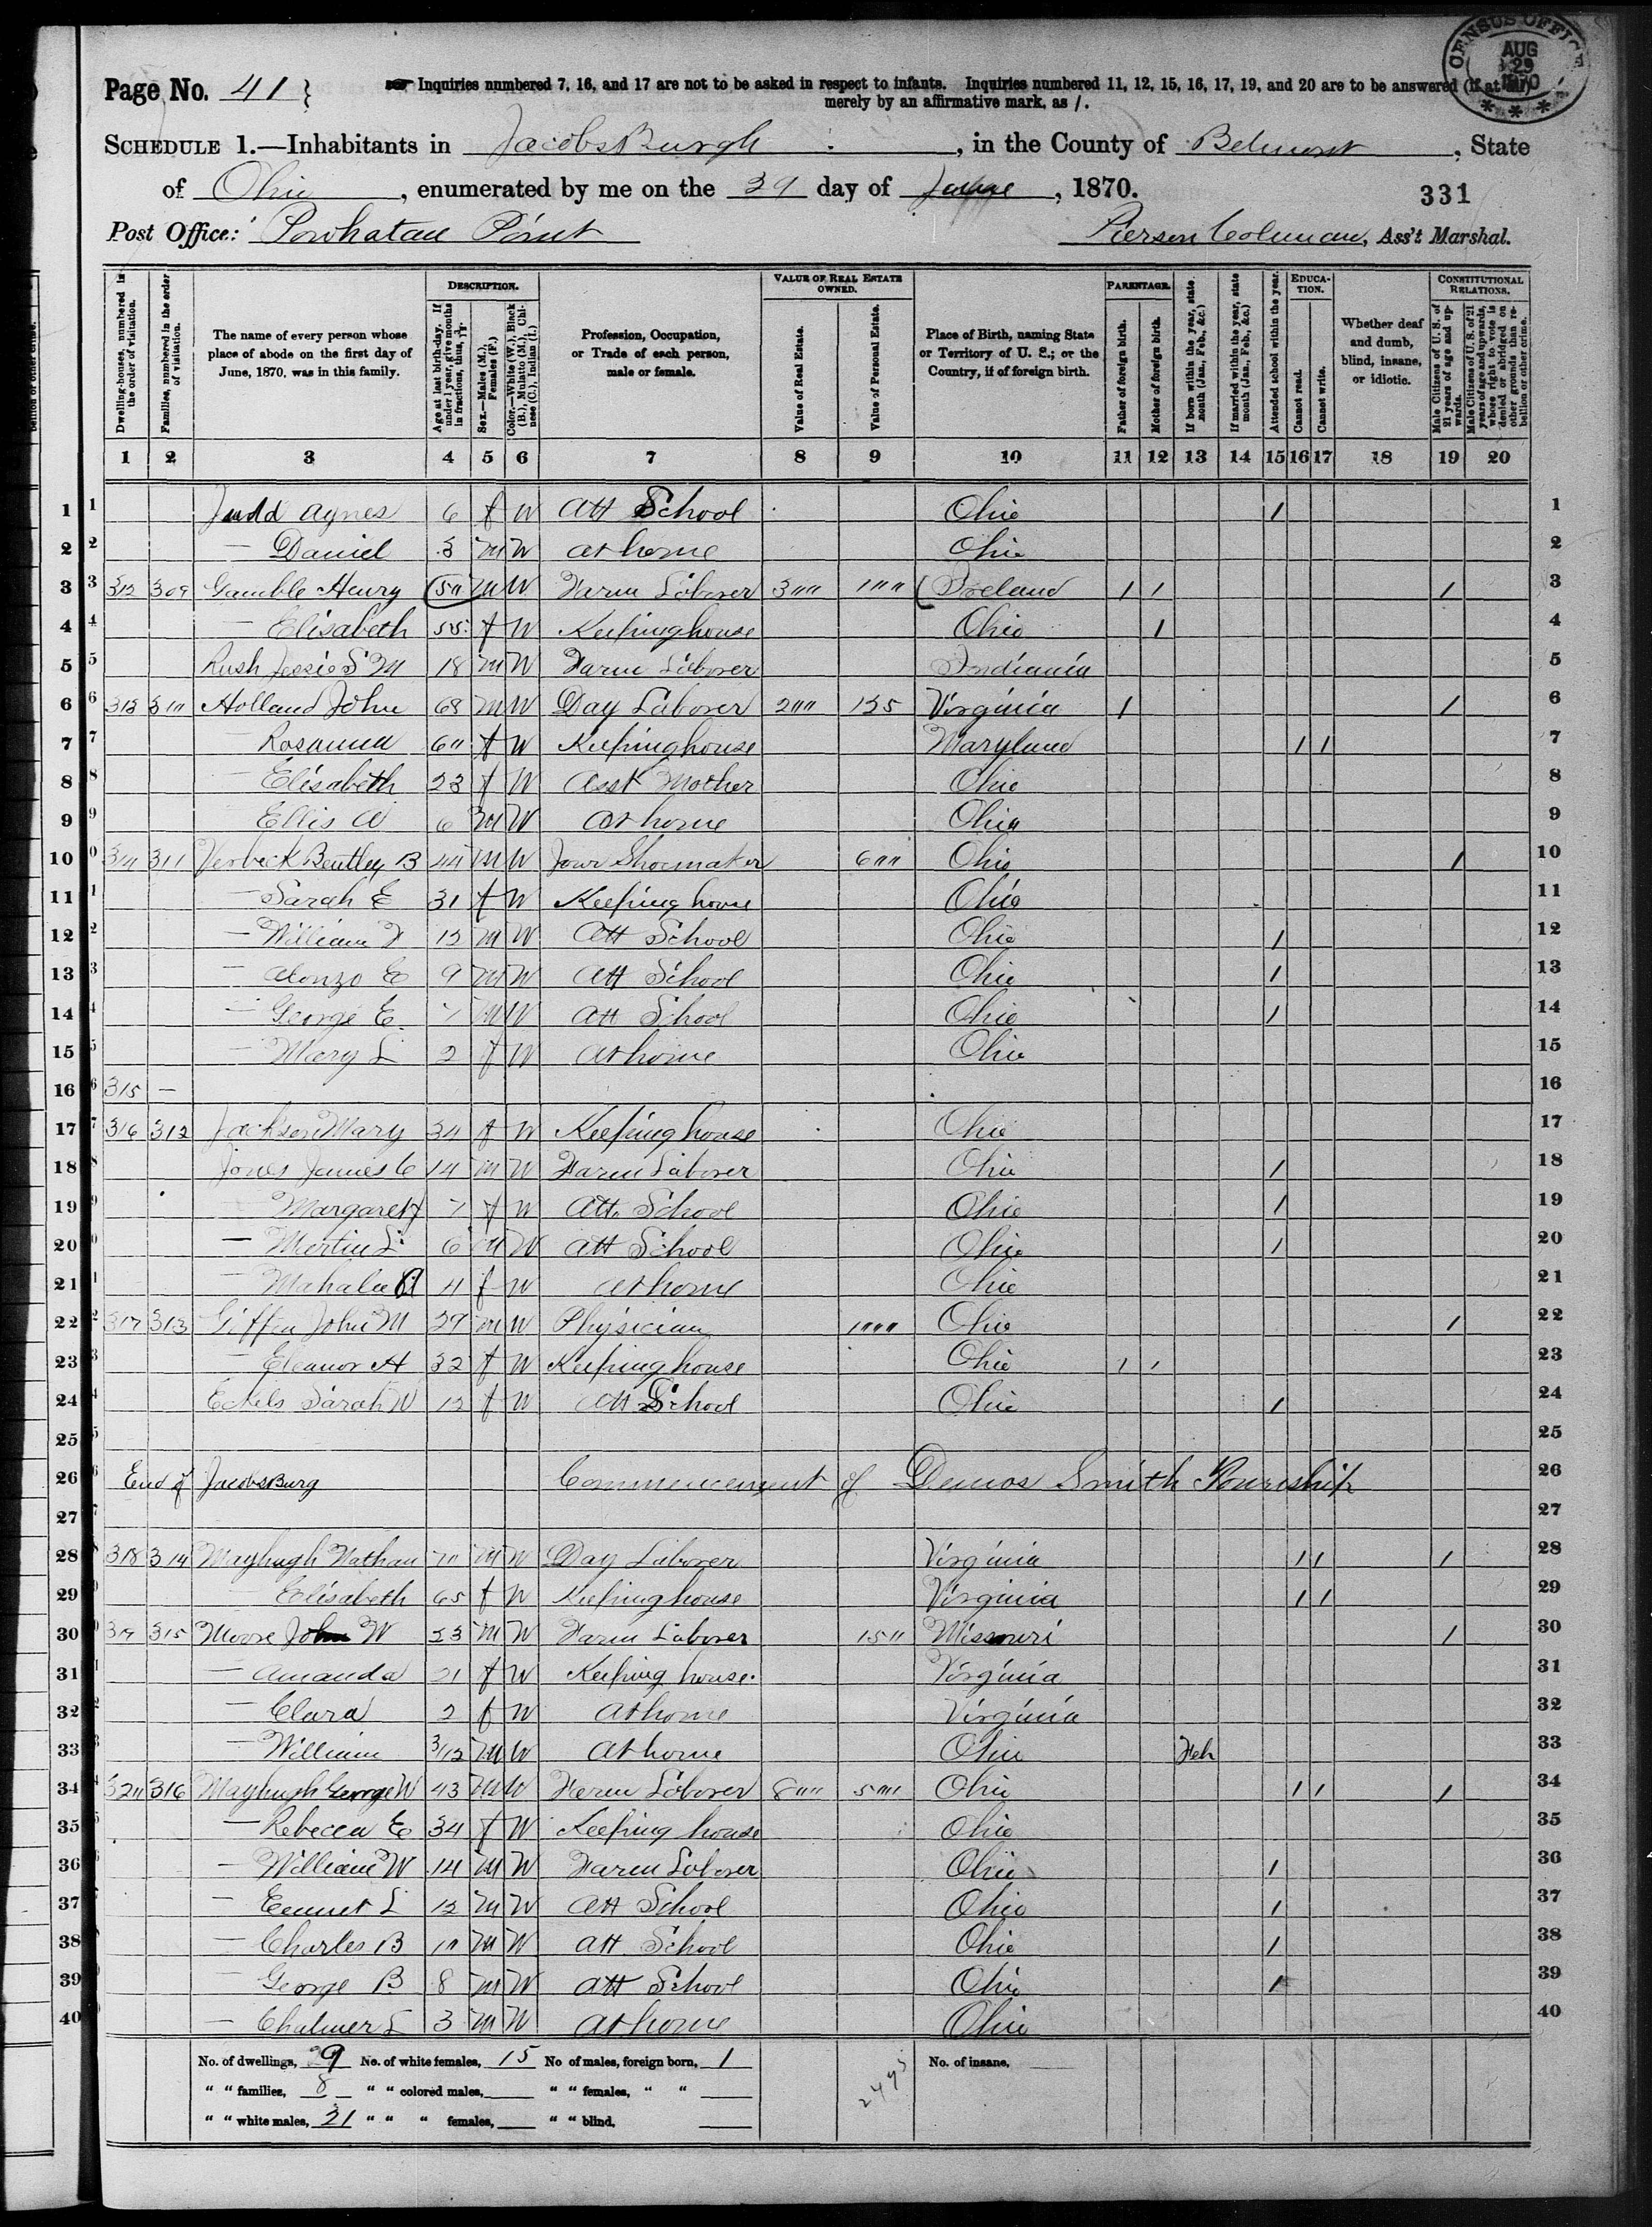 CENSUS OFFICE AUG 29 1870
Page No. 41 } Inquiries numbered 7, 16, and 17 are not to be asked in respect to infants. Inquiries numbered 11, 12, 15, 16, 17, 19, and 20 are to be answered (if at all)
merely by an affirmative mark, as /.
SCHEDULE 1.—Inhabitants in JacobsBurgh, in the County of Belmont, State
of Ohio, enumerated by me on the day of, 1870.
331
Post Office: Powhatan Point Pierson Coleman, Ass't Marshal.
Dwelling-houses, numbered in the order of visitation.
Families, numbered in the order of visitation.
The name of every person whose place of abode on the first day of June, 1870, was in this family.
DESCRIPTION.
Age at last birth-day. If under 1 year, give months in fractions, thus, 3/12
Sex.—Males (M.), Females (F.)
Color.—White (W.), Black (B.), Mulatto (M.), Chinese (C.), Indian (I.)
Profession, Occupation, or Trade of each person, male or female.
VALUE OF REAL ESTATE OWNED.
Value of Real Estate.
Value of Personal Estate.
Place of Birth, naming State or Territory of U. S.; or the Country, if of foreign birth.
PARENTAGE.
Father of foreign birth.
Mother of foreign birth.
If born within the year, state month (Jan., Feb., &c.)
If married within the year, state month (Jan., Feb., &c.)
Attended school within the year.
EDUCATION.
Cannot read.
Cannot write.
Whether deaf and dumb, blind, insane, or idiotic.
CONSTITUTIONAL RELATIONS.
Male Citizens of U. S. of 21 years of age and upwards.
Male Citizens of U. S. of 21 years of age and upwards, whose right to vote is denied or abridged on other grounds than rebellion or other crime.
1 2 3 4 5 6 7 8 9 10 11 12 13 14 15 16 17 18 19 20
1 Judd Agnes 6 f W Att School Ohio / 1
2 — Daniel 3 m W at home Ohio 2
3 312 309 Gamble Henry (5" m W Farm Laborer 3"" 1"" (Ireland / / / 3
4 — Elisabeth 55 f W Keepinghouse Ohio / 4
5 Rush Jessie S M 18 m W Farm Laborer Indiania 5
6 313 31" Holland John 68 m W Day Laborer 2"" 125 Virginia / / 6
7 — Rosanna 6" f W Keepinghouse Maryland / / 7
8 — Elisabeth 23 f W Asst Mother Ohio 8
9 — Ellis W 6 m W At home Ohio 9
10 314 311 Verbeck Bentley B 44 m W Jour Shoemaker 6"" Ohio / 10
11 — Sarah E 31 f W Keeping house Ohio 11
12 — William F 12 m W Att School Ohio / 12
13 — Alonzo E 9 m W Att School Ohio / 13
14 — George E. 7 m W Att School Ohio / 14
15 — Mary L 2 f W At home Ohio 15
16 315 — 16
17 316 312 Jackson Mary 34 f W Keeping house Ohio 17
18 Jones James C 14 m W Farm Laborer Ohio / 18
19 — Margaret 7 f W Att School Ohio / 19
20 — Martin L. 6 m W Att School Ohio / 20
21 — Mahala 4 f W At home Ohio 21
22 317 313 Giffen John M 29 m W Physician 1""" Ohio / 22
23 — Eleanor A 32 f W Keeping house Ohio / / 23
24 Eckels Sarah W 12 f W Att School Ohio / 24
25 25
26 End of JacobsBurg Commencement of Demos Smith Township 26
27 27
28 318 314 Mayhugh Nathan 7" m W Day Laborer Virginia / / / 28
29 — Elisabeth 65 f W Keepinghouse Virginia / / 29
30 319 315 Moore John W 23 m W Farm Laborer 15" Missouri / 30
31 — Amanda 21 f W Keeping house. Virginia 31
32 — Clara 2 f W At home Virginia 32
33 — William 3/12 m W At home Ohio Feb 33
34 32" 316 Mayhugh George W 43 m W Farm Laborer 8"" 5"" Ohio / / / 34
35 — Rebecca E 34 f W Keeping house Ohio 35
36 — William W 14 m W Farm Laborer Ohio / 36
37 — Emmet L 12 m W Att School Ohio / 37
38 — Charles B 1" m W Att School Ohio / 38
39 — George B 8 m W Att School Ohio / 39
40 — Chalmer L 3 m W At home Ohio 40
No. of dwellings, 9 No. of white females, 15 No of males, foreign born, 1 No. of insane,
" " families, 8 " " colored males, " " females, " "
" " white males, 21 " " " females, " " blind,
2495